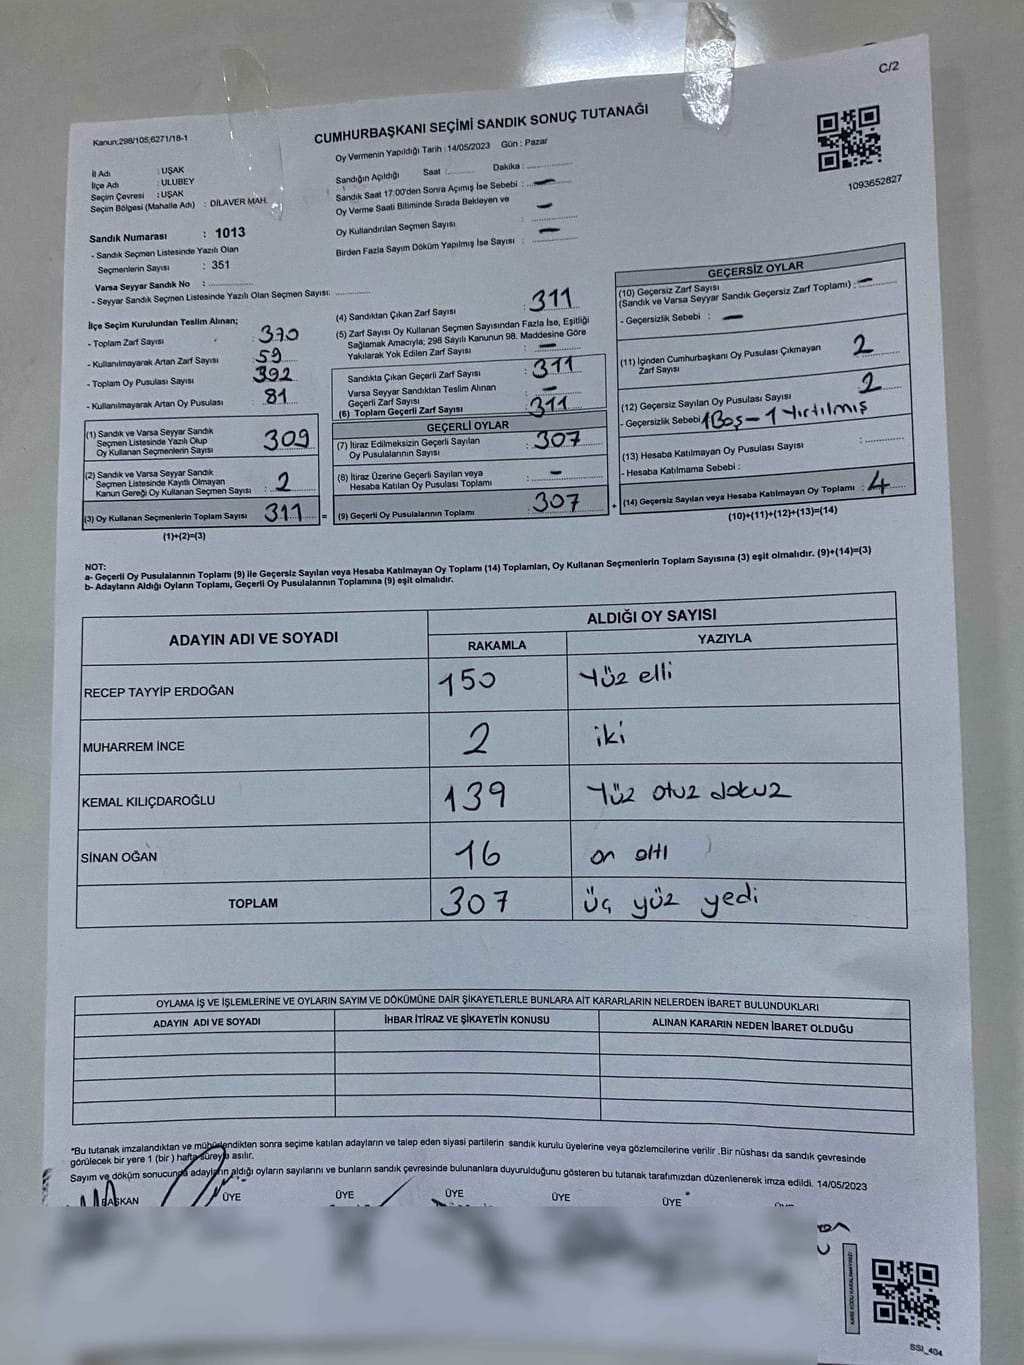 C/2
Kanun;298/105;6271/18-1
CUMHURBAŞKANI SEÇİMİ SANDIK SONUÇ TUTANAĞI
Oy Vermenin Yapıldığı Tarih : 14/05/2023 Gün : Pazar
1093652827
İl Adı : UŞAK
İlçe Adı : ULUBEY
Seçim Çevresi : UŞAK
Seçim Bölgesi (Mahalle Adı) : DİLAVER MAH.
Sandık Numarası : 1013
- Sandık Seçmen Listesinde Yazılı Olan
Seçmenlerin Sayısı : 351
Varsa Seyyar Sandık No : ..............
- Seyyar Sandık Seçmen Listesinde Yazılı Olan Seçmen Sayısı: ..............
Sandığın Açıldığı Saat :.......... Dakika : ..............
Sandık Saat 17:00'den Sonra Açımış İse Sebebi : —
Oy Verme Saati Bitiminde Sırada Bekleyen ve
Oy Kullandırılan Seçmen Sayısı : —
Birden Fazla Sayım Döküm Yapılmış İse Sayısı : —
İlçe Seçim Kurulundan Teslim Alınan;
- Toplam Zarf Sayısı : 370
- Kullanılmayarak Artan Zarf Sayısı : 59
- Toplam Oy Pusulası Sayısı : 392
- Kullanılmayarak Artan Oy Pusulası : 81
(1) Sandık ve Varsa Seyyar Sandık
Seçmen Listesinde Yazılı Olup
Oy Kullanan Seçmenlerin Sayısı : 309
(2) Sandık ve Varsa Seyyar Sandık
Seçmen Listesinde Kayıtlı Olmayan
Kanun Gereği Oy Kullanan Seçmen Sayısı : 2
(3) Oy Kullanan Seçmenlerin Toplam Sayısı : 311 =
(1)+(2)=(3)
(4) Sandıktan Çıkan Zarf Sayısı : 311
(5) Zarf Sayısı Oy Kullanan Seçmen Sayısından Fazla İse, Eşitliği
Sağlamak Amacıyla; 298 Sayılı Kanunun 98. Maddesine Göre
Yakılarak Yok Edilen Zarf Sayısı : —
Sandıkta Çıkan Geçerli Zarf Sayısı : 311
Varsa Seyyar Sandıktan Teslim Alınan
Geçerli Zarf Sayısı : —
(6) Toplam Geçerli Zarf Sayısı : 311
GEÇERLİ OYLAR
(7) İtiraz Edilmeksizin Geçerli Sayılan
Oy Pusulalarının Sayısı : 307
(8) İtiraz Üzerine Geçerli Sayılan veya
Hesaba Katılan Oy Pusulası Toplamı : —
(9) Geçerli Oy Pusulalarının Toplamı : 307 +
GEÇERSİZ OYLAR
(10) Geçersiz Zarf Sayısı
(Sandık ve Varsa Seyyar Sandık Geçersiz Zarf Toplamı) : —
- Geçersizlik Sebebi : —
(11) İçinden Cumhurbaşkanı Oy Pusulası Çıkmayan
Zarf Sayısı : 2
(12) Geçersiz Sayılan Oy Pusulası Sayısı : 2
- Geçersizlik Sebebi 1 Boş – 1 Yırtılmış
(13) Hesaba Katılmayan Oy Pusulası Sayısı : ..............
- Hesaba Katılmama Sebebi :
(14) Geçersiz Sayılan veya Hesaba Katılmayan Oy Toplamı : 4
(10)+(11)+(12)+(13)=(14)
NOT:
a- Geçerli Oy Pusulalarının Toplamı (9) ile Geçersiz Sayılan veya Hesaba Katılmayan Oy Toplamı (14) Toplamları, Oy Kullanan Seçmenlerin Toplam Sayısına (3) eşit olmalıdır. (9)+(14)=(3)
b- Adayların Aldığı Oyların Toplamı, Geçerli Oy Pusulalarının Toplamına (9) eşit olmalıdır.
ADAYIN ADI VE SOYADI ALDIĞI OY SAYISI
RAKAMLA YAZIYLA
RECEP TAYYİP ERDOĞAN 150 Yüz elli
MUHARREM İNCE 2 iki
KEMAL KILIÇDAROĞLU 139 Yüz otuz dokuz
SİNAN OĞAN 16 on altı
TOPLAM 307 üç yüz yedi
OYLAMA İŞ VE İŞLEMLERİNE VE OYLARIN SAYIM VE DÖKÜMÜNE DAİR ŞİKAYETLERLE BUNLARA AİT KARARLARIN NELERDEN İBARET BULUNDUKLARI
ADAYIN ADI VE SOYADI İHBAR İTİRAZ VE ŞİKAYETİN KONUSU ALINAN KARARIN NEDEN İBARET OLDUĞU
*Bu tutanak imzalandıktan ve mühürlendikten sonra seçime katılan adayların ve talep eden siyasi partilerin sandık kurulu üyelerine veya gözlemcilerine verilir .Bir nüshası da sandık çevresinde
görülecek bir yere 1 (bir ) hafta süreyle asılır.
Sayım ve döküm sonucunda adayların aldığı oyların sayılarını ve bunların sandık çevresinde bulunanlara duyurulduğunu gösteren bu tutanak tarafımızdan düzenlenerek imza edildi. 14/05/2023
BAŞKAN ÜYE ÜYE ÜYE ÜYE ÜYE
KARE KODU KARALAMAYINIZ!
SSI_404